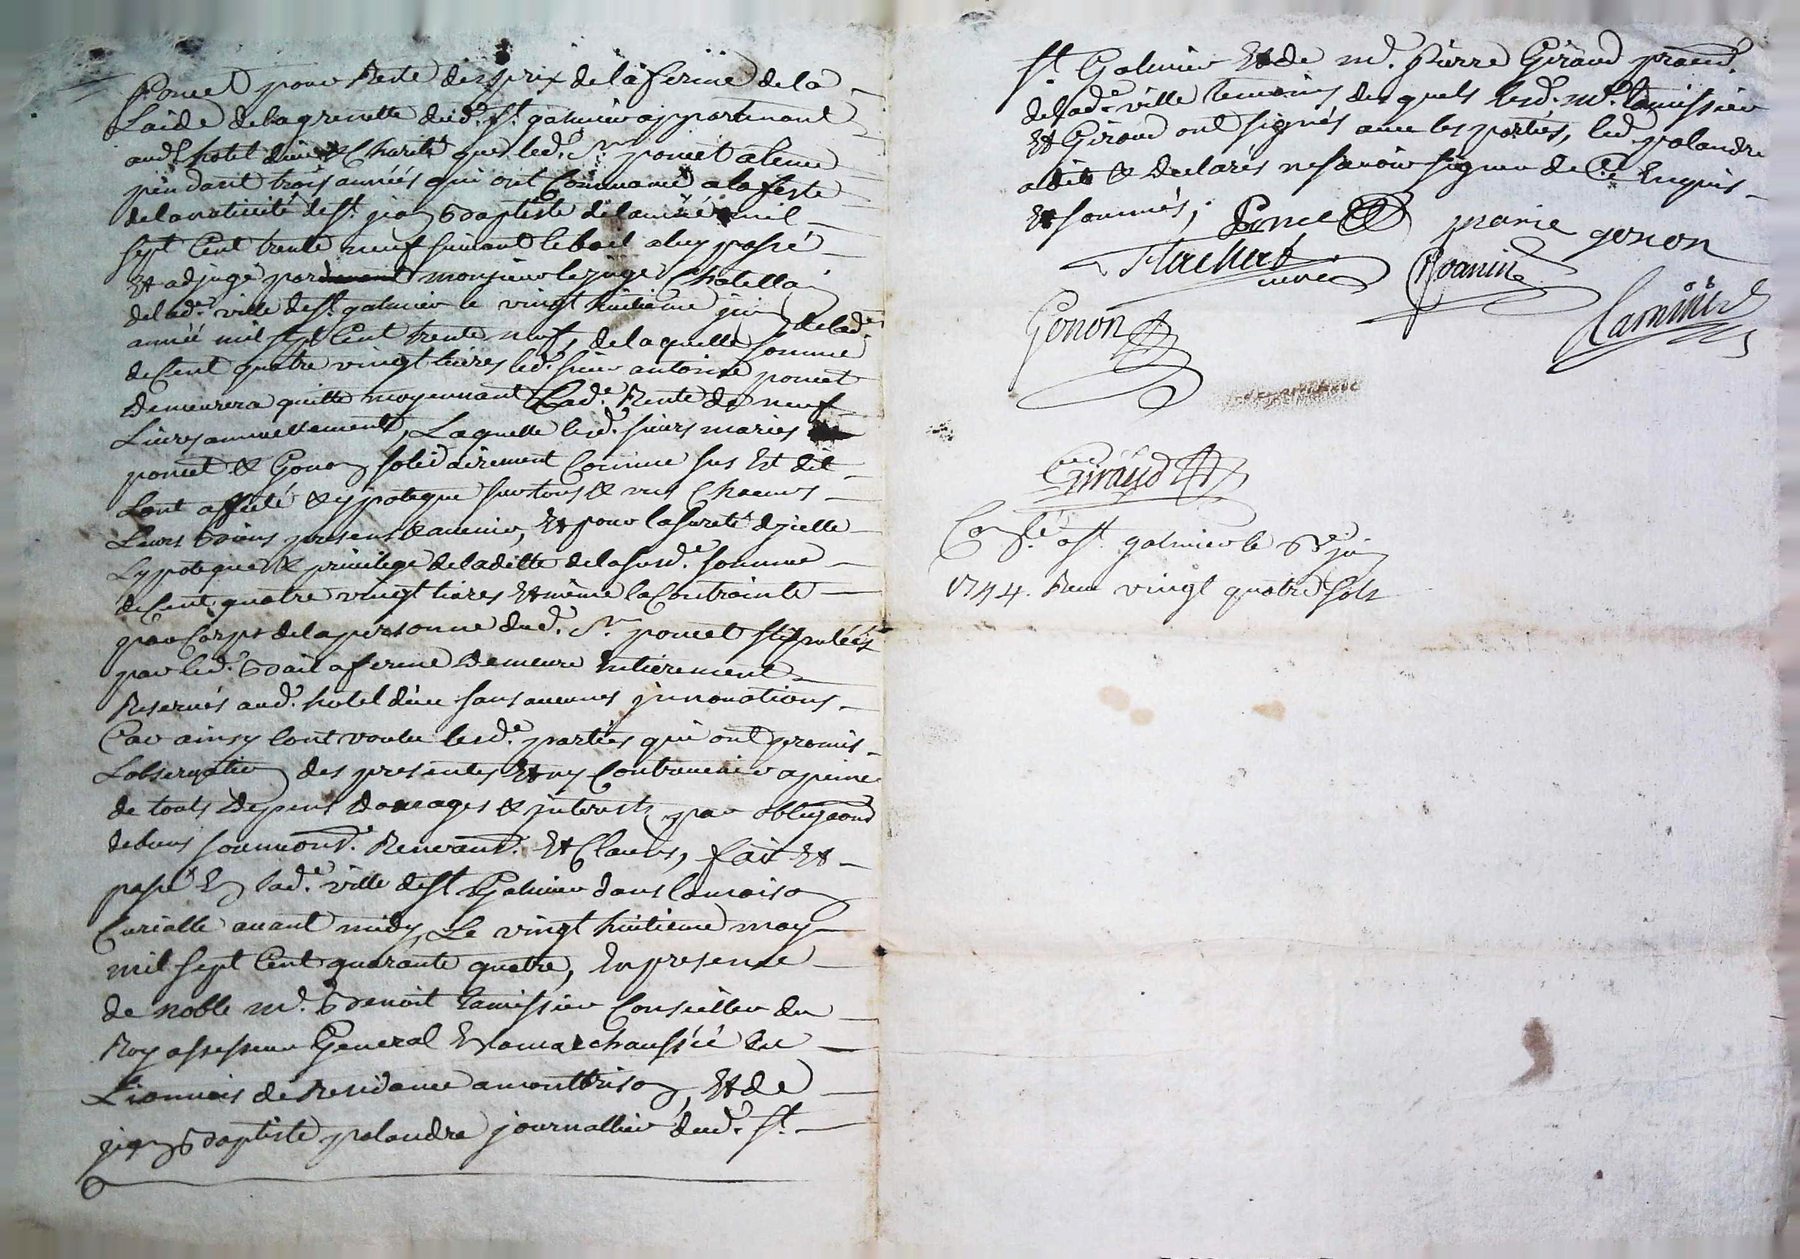 Poncet pour Reste des prix de la ferme de la
Laide de la grenette dud. st. galmier appartenant
aud. hotel dieu & Charité que led. Sr. poncet a tenu
pendant trois années qui ont Commancé a la feste
de la nativité de st. jean Baptiste de lannée mil
sept Cent trente neuf suivant le bail a luy passé
Et adjugé par monsieur le juge Chatellain
de lade. ville de st. galmier le vingt huitieme juin de lade.
année mil sept Cent trente neuf, de laquelle somme
de Cent quatre vingt livres led. sieur antoine poncet
Demeurera quitte moyennant Lade. Rente de neuf
Livres annuellement, Laquelle lesd. sieurs mariés
poncet & Gonon solidairement Comme sus Est dit
Lont affecté & ypotequé sur tous & uns Chacuns
Leurs Biens presens & avenir, Et pour la sureté dicelle
Lypoteque & privilege de laditte de la susde. somme
de Cent quatre vingt livres Et même la Contrainte
par Corps de la personne dud. Sr. poncet stipulées
par led. Bail a ferme Demeure Entierement
Reservés aud. hotel dieu sans aucunes jnnovations
Car ainsy Lont voulu lesde. parties qui ont promis
Lobservation des presentes Et ny Contrevenir a peine
de touts Depens Domages & jnterests par obligaons
de biens soumions. Renonons. Et Clauses, fait Et
passé En lade. ville de st Galmier dans la maison
Curialle avant midy, Le vingt huitieme may
mil sept Cent quarante quatre, En presence
de noble me. Benoit Tamissier Conseiller du
Roy assesseur General En la marechaussée du
Lionnois de Residance a montbrison, Et de
jean Baptiste palandre journallier dud. st.
st. Galmier Et de me. Pierre Giraud
de lade. ville temoins desquels lesd. me. Tamissier
Et Giraud ont signés avec les parties, led. palandre
a dit & declarés ne savoir signer de Ce Enquis
Et sommés;
Poncet marie gonon
Flachat curé
Gonon Tamissier
Giraud
Conlé. a st. galmier le 6e juin
1744. Reçu vingt quatre sols